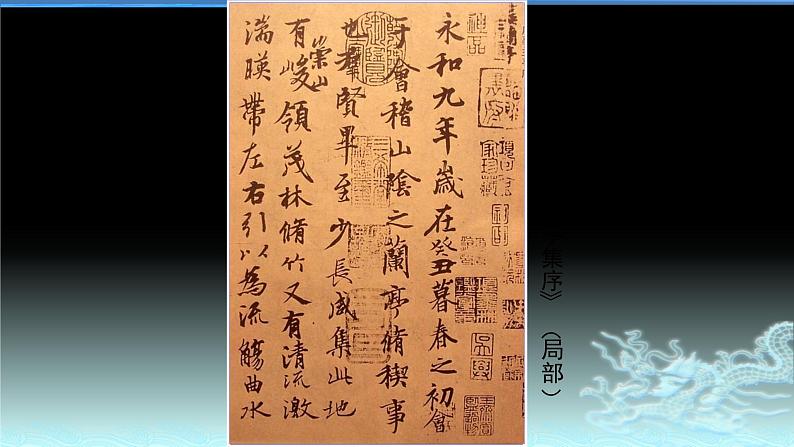 永和九年歲在癸丑暮春之初會
于會稽山陰之蘭亭脩稧事
也羣賢畢至少長咸集此地
有崇山峻領茂林脩竹又有清流激
湍暎帶左右引以為流觴曲水
集序》（局部）